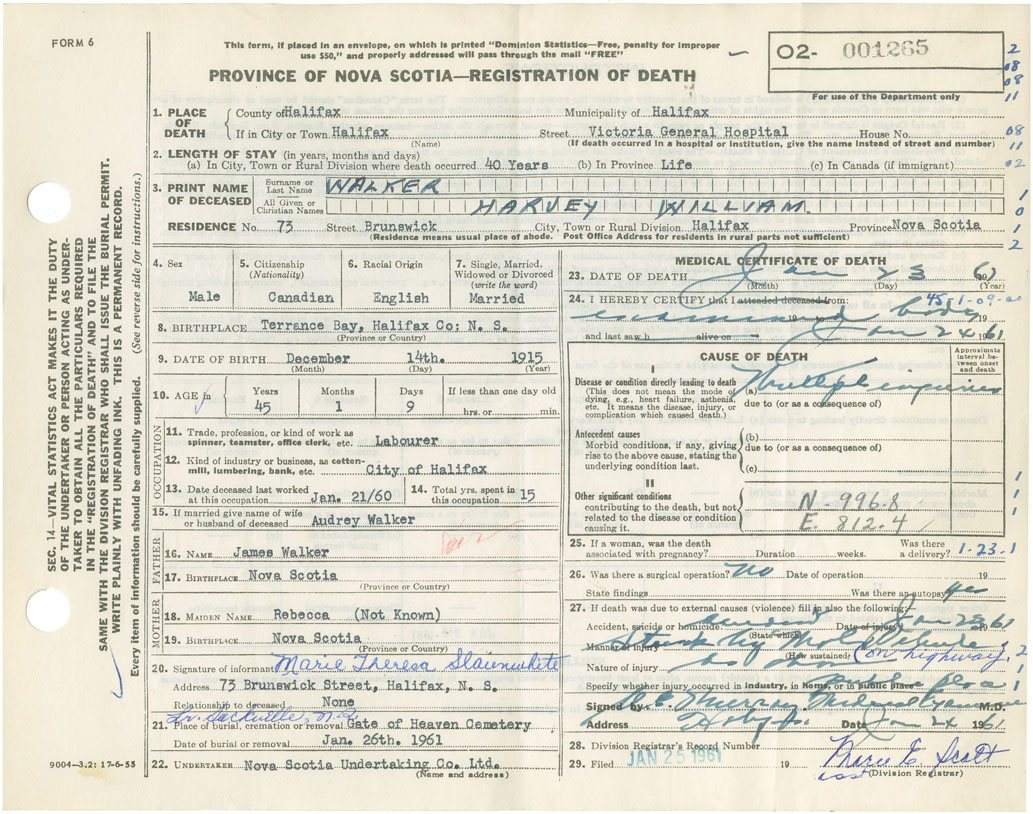 FORM 6
This form, if placed in an envelope, on which is printed "Dominion Statistics—Free, penalty for improper
use $50," and properly addressed will pass through the mail "FREE"
O2- 001265
PROVINCE OF NOVA SCOTIA—REGISTRATION OF DEATH
For use of the Department only
2
08
08
11
08
11
02
1
0
1
2
1. PLACE OF DEATH
County of Halifax Municipality of Halifax
If in City or Town Halifax Street Victoria General Hospital House No.
(Name) (If death occurred in a hospital or institution, give the name instead of street and number)
2. LENGTH OF STAY (in years, months and days)
(a) In City, Town or Rural Division where death occurred 40 Years (b) In Province Life (c) In Canada (if immigrant)
3. PRINT NAME OF DECEASED
Surname or Last Name WALKER
All Given or Christian Names HARVEY WILLIAM.
RESIDENCE No. 73 Street Brunswick City, Town or Rural Division Halifax Province Nova Scotia
(Residence means usual place of abode. Post Office Address for residents in rural parts not sufficient)
4. Sex Male
5. Citizenship (Nationality) Canadian
6. Racial Origin English
7. Single, Married, Widowed or Divorced (write the word) Married
8. BIRTHPLACE Terrance Bay, Halifax Co: N. S.
(Province or Country)
9. DATE OF BIRTH December 14th. 1915
(Month) (Day) (Year)
10. AGE in Years 45 Months 1 Days 9 If less than one day old hrs. or min.
OCCUPATION
11. Trade, profession, or kind of work as
spinner, teamster, office clerk, etc. Labourer
12. Kind of industry or business, as cotton-
mill, lumbering, bank, etc. City of Halifax
13. Date deceased last worked at this occupation Jan. 21/60
14. Total yrs. spent in this occupation 15
15. If married give name of wife
or husband of deceased Audrey Walker
FATHER
16. NAME James Walker
17. BIRTHPLACE Nova Scotia
(Province or Country)
MOTHER
18. MAIDEN NAME Rebecca (Not Known)
19. BIRTHPLACE Nova Scotia
(Province or Country)
20. Signature of informant Marie Theresa Slaunwhite
Address 73 Brunswick Street, Halifax, N. S.
Relationship to deceased None
Lr. Sackville, N.S.
21. Place of burial, cremation or removal Gate of Heaven Cemetery
Date of burial or removal Jan. 26th. 1961
22. UNDERTAKER Nova Scotia Undertaking Co. Ltd.
(Name and address)
MEDICAL CERTIFICATE OF DEATH
23. DATE OF DEATH Jan 23 1961
(Month) (Day) (Year)
24. I HEREBY CERTIFY that I attended deceased from:
45 1-09-
examined 19 body 19
and last saw h alive on Jan 24 1961
CAUSE OF DEATH
Approximate interval between onset and death
I
Disease or condition directly leading to death
(This does not mean the mode of
dying, e.g., heart failure, asthenia,
etc. It means the disease, injury, or
complication which caused death.)
(a) Multiple injuries
due to (or as a consequence of)
Antecedent causes
Morbid conditions, if any, giving
rise to the above cause, stating the
underlying condition last.
(b)
due to (or as a consequence of)
(c)
II
Other significant conditions
contributing to the death, but not
related to the disease or condition
causing it.
N-996.8
E. 812.4
25. If a woman, was the death
associated with pregnancy? Duration weeks. Was there a delivery? 1-23-1
26. Was there a surgical operation? No Date of operation 19
State findings Was there an autopsy yes
27. If death was due to external causes (violence) fill in also the following:
Accident, suicide or homicide accident Date of injury Jan 23 1961
(State which)
Manner of injury Struck by
(How sustained) (on highway)
Nature of injury as above
Specify whether injury occurred in industry, in home, or in public place public place
Signed by Murray Medical Examiner M.D.
Address Date Jan 24 1961
28. Division Registrar's Record Number
29. Filed JAN 25 1961 19 Marie E Scott
(Division Registrar)
asst
1
1
1
1
2
1
SEC. 14—VITAL STATISTICS ACT MAKES IT THE DUTY
OF THE UNDERTAKER OR PERSON ACTING AS UNDER-
TAKER TO OBTAIN ALL THE PARTICULARS REQUIRED
IN THE "REGISTRATION OF DEATH" AND TO FILE THE
SAME WITH THE DIVISION REGISTRAR WHO SHALL ISSUE THE BURIAL PERMIT.
WRITE PLAINLY WITH UNFADING INK. THIS IS A PERMANENT RECORD.
Every item of information should be carefully supplied. (See reverse side for instructions.)
9004—3.2: 17-6-55